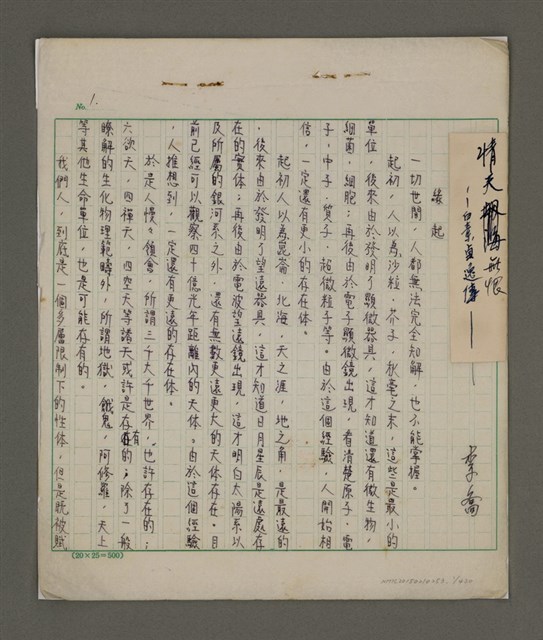 No. 1.
情天無恨
——白素貞逸傳——
李喬
緣起
一切世間，人都無法完全知解，也不能掌握。
起初，人以為沙粒，芥子，秋毫之末，這些是最小的
單位，後來由於發明了顯微器具，這才知道還有微生物，
細菌，細胞；再後由於電子顯微鏡出現，看清楚原子，電
子，中子，質子，超微粒子等。由於這個經驗，人開始相
信，一定還有更小的存在體。
起初人以為崑崙，北海，天之涯，地之角，是最遠的
，後來由於發明了望遠器具，這才知道日月星辰是遠處存
在的實体；再後由於電波望遠鏡出現，這才明白太陽系以
及所屬的銀河系之外，還有無數更遠更大的天体存在。目
前已經可以觀察四十億光年距離內的天体。由於這個經驗
，人推想到，一定還有更遠的存在体。
於是人慢慢領會，所謂三千大千世界，也許存在的；
六欲天，四禪天，四空天等諸天或許是存有的；除了一般
瞭解的生化物理範疇外，所謂地獄，餓鬼，阿修羅，天上
等其他生命單位，也是可能存有的。
我們人，到底是一個多層限制下的性体，但是既被賦
(20×25=500)